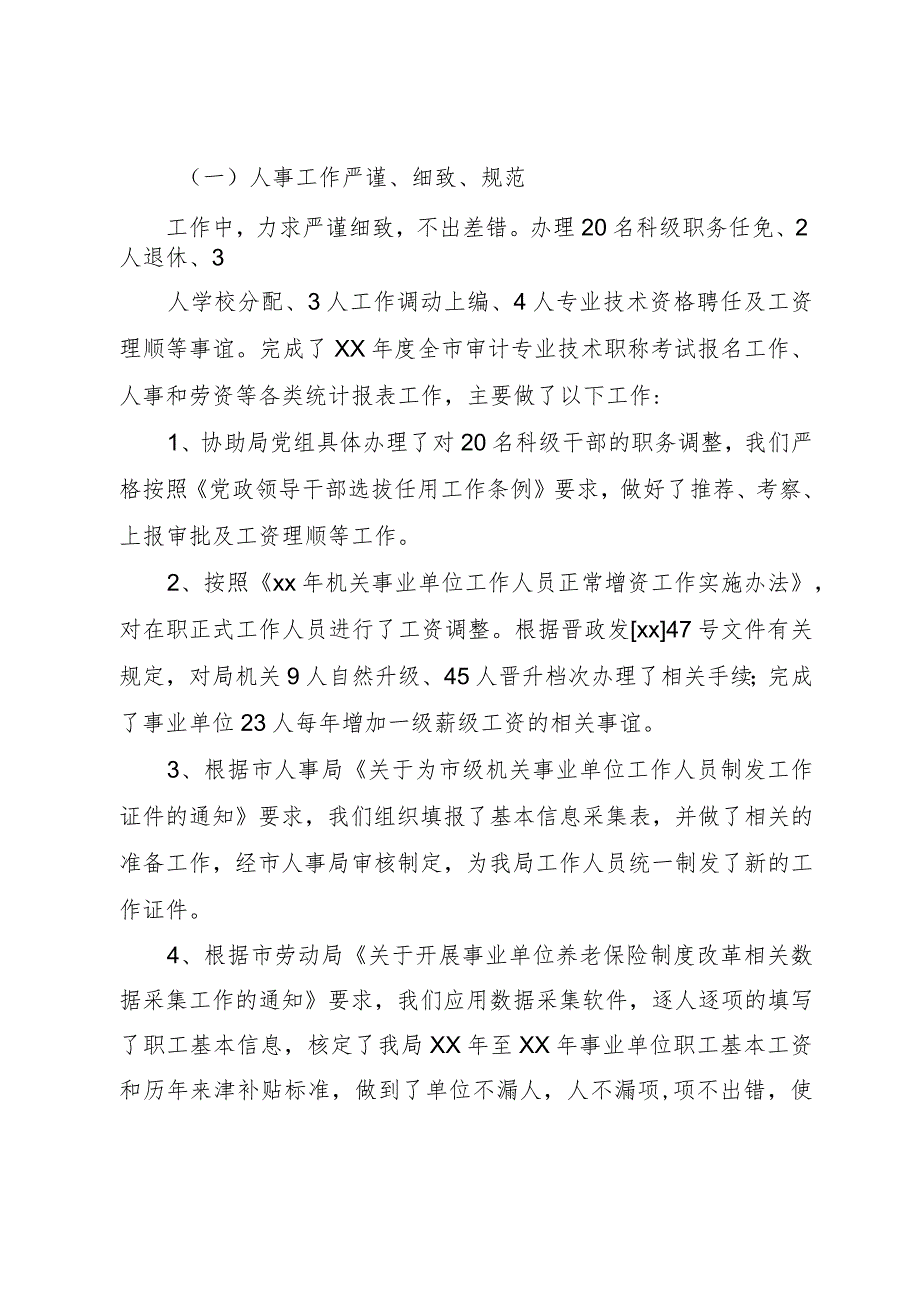 （一）人事工作严谨、细致、规范
工作中，力求严谨细致，不出差错。办理 20 名科级职务任免、2
人退休、3
人学校分配、3 人工作调动上编、4 人专业技术资格聘任及工资
理顺等事谊。完成了 XX 年度全市审计专业技术职称考试报名工作、
人事和劳资等各类统计报表工作，主要做了以下工作:
1、协助局党组具体办理了对 20 名科级干部的职务调整，我们严
格按照《党政领导干部选拔任用工作条例》要求，做好了推荐、考察、
上报审批及工资理顺等工作。
2、按照《xx 年机关事业单位工作人员正常增资工作实施办法》,
对在职正式工作人员进行了工资调整。根据晋政发[xx]47 号文件有关
规定，对局机关 9 人自然升级、45 人晋升档次办理了相关手续；完成
了事业单位 23 人每年增加一级薪级工资的相关事谊。
3、根据市人事局《关于为市级机关事业单位工作人员制发工作
证件的通知》要求，我们组织填报了基本信息采集表，并做了相关的
准备工作，经市人事局审核制定，为我局工作人员统一制发了新的工
作证件。
4、根据市劳动局《关于开展事业单位养老保险制度改革相关数
据采集工作的通知》要求，我们应用数据采集软件，逐人逐项的填写
了职工基本信息，核定了我局 XX 年至 XX 年事业单位职工基本工资
和历年来津补贴标准，做到了单位不漏人，人不漏项,项不出错，使